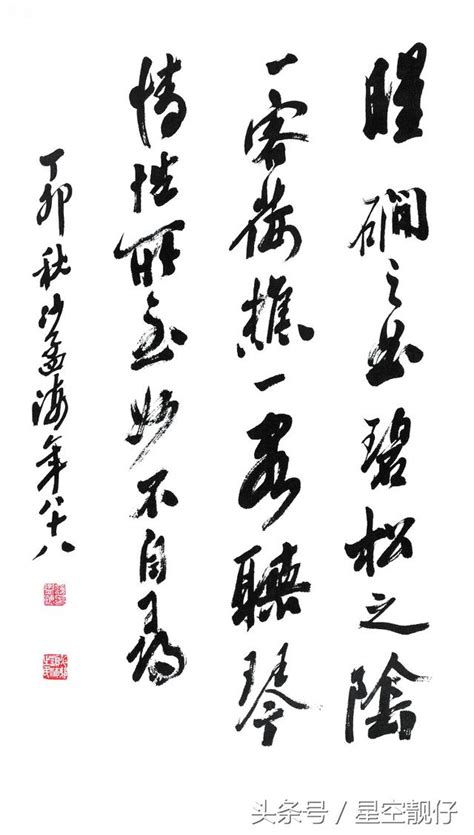 晴磵之曲碧松之陰
一客荷樵一客聽琴
情性所至妙不自尋
丁卯秋沙孟海年八十八
头条号 / 星空靓仔